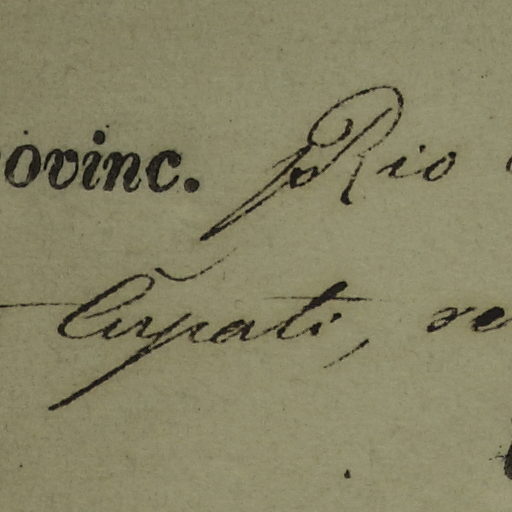 ovinc. Rio
Cupati, re